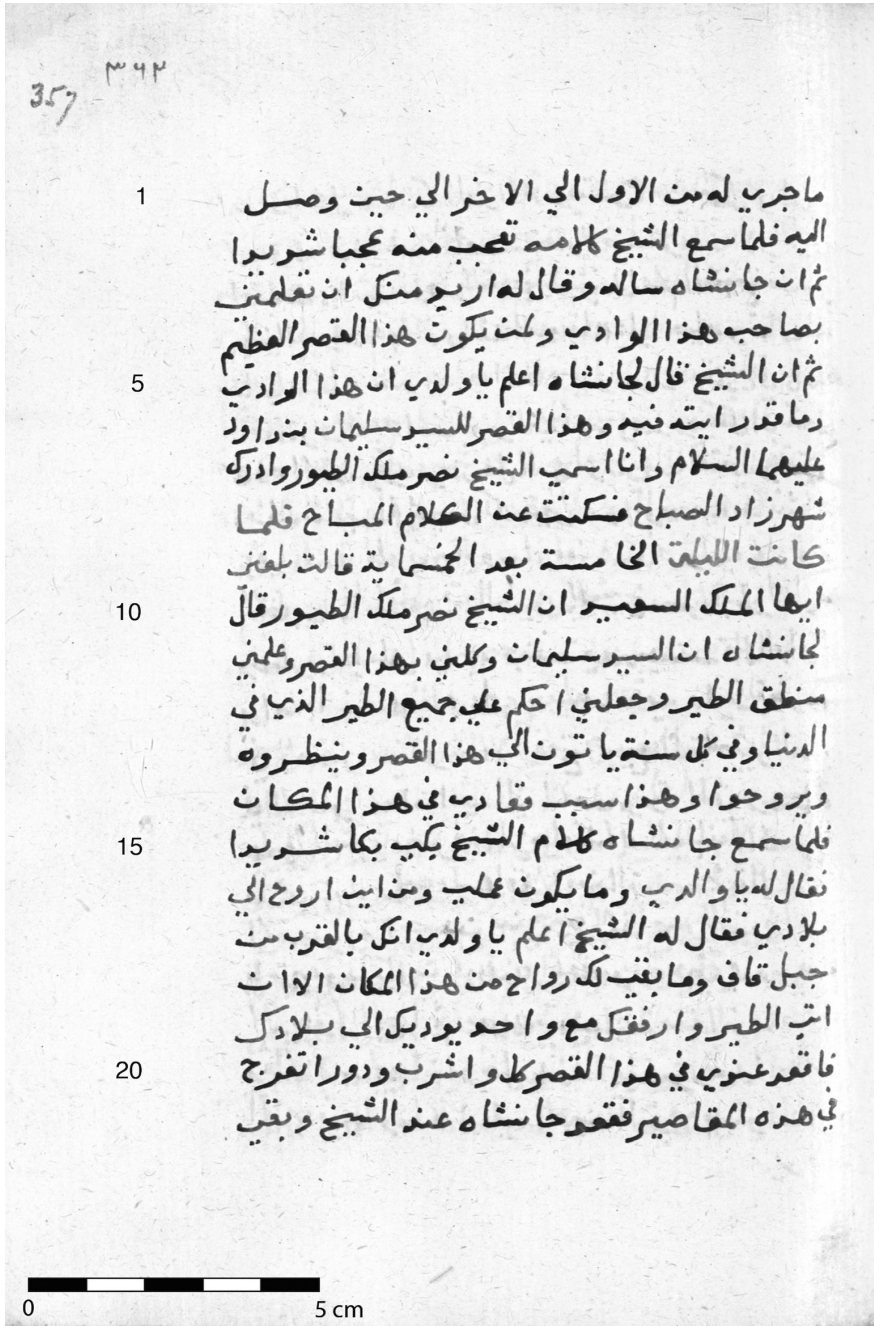 ٣٦٢
357
1 ماجري له من الاول الي الاخر الي حين وصل
اليه فلما سمع الشيخ كلامه تعجب منه عجبا شديدا
ثم ان جانشاه ساله وقال له اريد منك ان تعلمني
بصاحب هذا الوادي ولمن يكون هذا القصر العظيم
5 ثم ان الشيخ قال لجانشاه اعلم يا ولدي ان هذا الوادي
وما قد رايته فيه وهذا القصر للسيد سليمان بن داود
عليهما السلام وانا اسمي الشيخ نصر ملك الطيور وادرك
شهرزاد الصباح فسكتت عن الكلام المباح فلما
كانت الليلة الخامسة بعد الخمسماية قالت بلغني
10 ايها الملك السعيد ان الشيخ نصر ملك الطيور قال
لجانشاه ان السيد سليمان وكلني بهذا القصر وعلمني
منطق الطير وجعلني احكم علي جميع الطير الذي في
الدنيا وفي كل سنة ياتون الي هذا القصر وينظروه
ويروحوا وهذا سبب قعادي في هذا المكان
15 فلما سمع جانشاه كلام الشيخ بكي بكا شديدا
فقال له يا والدي وما يكون عملي ومن اين اروح الي
بلادي فقال له الشيخ اعلم يا ولدي انك بالقرب من
جبل قاف وما بقي لك رواح من هذا المكان الا ان
اتي الطير وارفقك مع واحد يوديك الي بلادك
20 فاقعد عندي في هذا القصر كل واشرب ودور اتفرج
في هذه المقاصير فقعد جانشاه عند الشيخ وبقي
0 5 cm